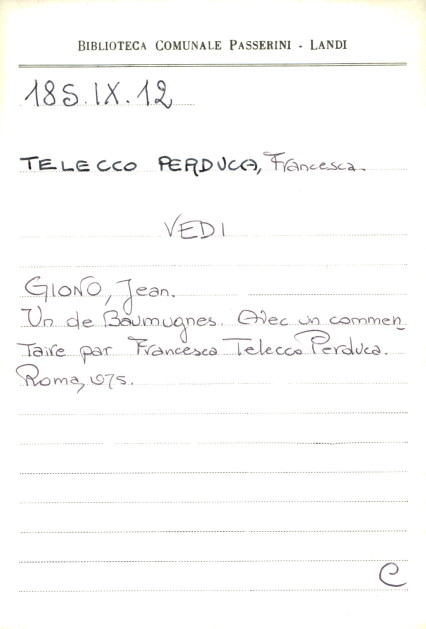 BIBLIOTECA COMUNALE PASSERINI - LANDI
185.IX.12
TELECCO PERDUCA, Francesca.
VEDI
GIONO, Jean.
Un de Baumugnes. Avec un commen_
taire par Francesca Telecco Perduca.
Roma, 1975.
C